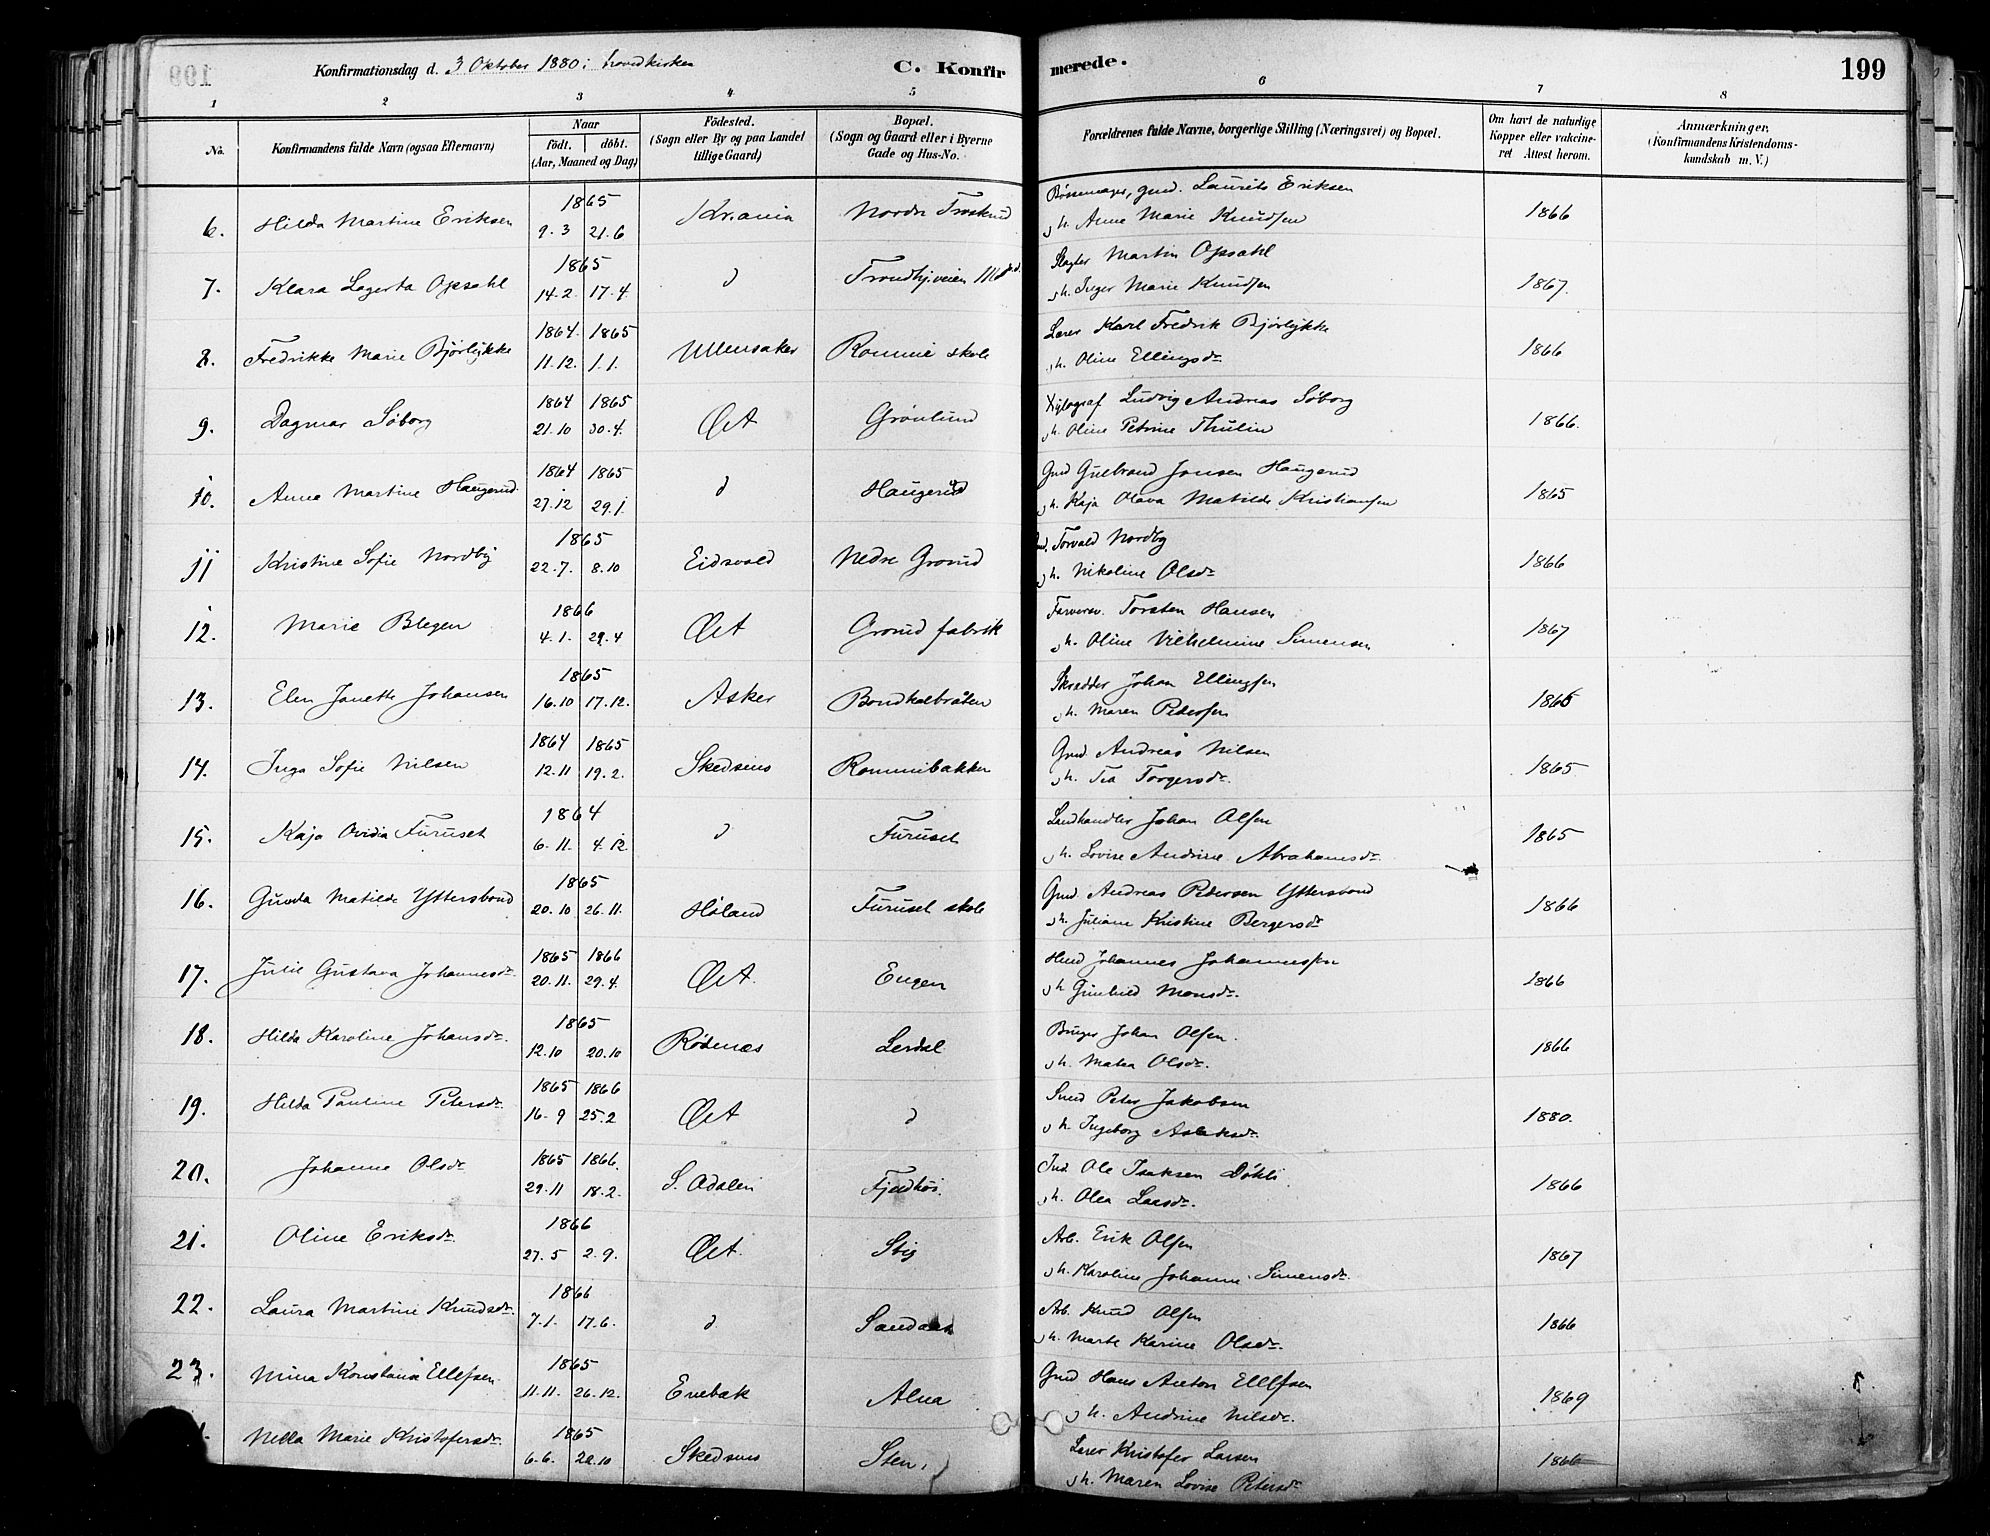 Konfirmationsdag d. 3 Oktober 1880 i hovedkirken C. Konfirmerede. 199
1 2 3 4 5 6 7 8
No. Konfirmandens fulde Navn (ogsaa Efternavn) Naar födt. döbt. (Aar, Maaned og Dag) Födested. (Sogn eller By og paa Landet tillige Gaard) Bopæl. (Sogn og Gaard eller i Byerne Gade og Hus-No. Forældrenes fulde Navne, borgerlige Stilling (Næringsvei) og Bopæl. Om havt de naturlige Kopper eller vakcineret Attest herom. Anmærkninger, (Konfirmandens Kristendomskundskab m. V.)
1865 Bössemager, gmd. Laurits Eriksen
6. Hilda Martine Eriksen 9.3 21.6 Kr.ania Nordre 1866
h. Anne Marie Knudsen
1865 Slagter Martin Opsahl
7. Klara Lagerta Opsahl 14.2. 17.4. d Trondhj.veien 1867.
h. Inger Marie Knudsen
1864. 1865 Lærer Karl Fredrik Bjørlykke
8. Fredrikke Marie Bjørlykke 11.12. 1.1. Ullensaker Rommie skole 1866
h. Oline Ellingsdr
1864 1865 Xylograf Ludvig Andreas Söborg
9. Dagmar Söborg 21.10 30.4. ØA Grönlund 1866.
h. Oline Petrine Thulin
1864 1865 Gmd Gulbrand Jonsen Haugerud
10. Anna Martine Haugerud. 27.12 29.1. d Haugerud 1865
h. Kaja Olava Matilde Kristiansen
1865 Torvald Nordby
11 Kristine Sofie Nordby 22.7. 8.10 Eidsvold Nedre Grorud 1866
h. Nikoline Olsdr
1866 Farversv. Torsten Hansen
12. Marie Blegen 4.1. 29.4 ØA Grorud fabrik 1867
h. Oline Vilhelmine Simensen
1865 Skrædder Johan Ellingsen
13. Elen Janette Johansen 16.10 17.12. Asker Bondkalbråten 1865
h. Maren Petersen
1864 1865 Gmd. Andreas Nilsen
14. Inga Sofie Nilsen 12.11 19.2. Skedsmo Rommibakken 1865
h. Tea Torgersdr.
1864 Landhandler Johan Olsen
15. Kaja Ovidia Furuset 6.11. 4.12. d Furuset 1865
h. Lovise Andrine Abrahamsdr.
1865 Gmd Andreas Petersen Yttersbond
16. Gunda Matilde Yttersbond 20.10 26.11. Høland Furuset skole 1866
h. Juliane Kristine Bergersdr
1865 1866 Johannes Johannessen
17. Julie Gustava Johannesdr. 20.11. 29.4. ØA. Engen 1866
h Gunhild Monsdr.
1865 Bruger Johan Olsen.
18. Hilda Karoline Johansdr. 12.10 20.10 Rödenæs Lerdal 1866
h. Matea Olsdr.
1865 1866 Smed Peter Jakobsen
19. Hilda Pauline Petersdr. 16.9 25.2 ØA d 1880.
h. Ingeborg Aslaksdr.
1865 1866. Ind. Ole Isaksen Dökli
20. Johanne Olsdr 29.11 18.2. S. Odalen Fjeldhöi. 1866
h. Olea Larsdr.
1866 Arb. Erik Olsen
21. Oline Eriksdr. 27.5 2.9. ØA. Stig 1867
h. Karoline Johanne Simensdr.
1866 Arb. Knud Olsen
22. Laura Martine Knudsdr. 7.1. 17.6. d Sandaas 1866
h. Marte Karine Olsdr.
1865 Gmd Hans Anton Ellefsen
23. Mina Konstanse Ellefsen 11.11. 26.12. Enebak Alna 1869
h. Andrine Nilsdr.
1865 Lærer Kristofer Larsen
Nella Marie Kristofersdr. 6.6. 22.10 Skedsmo Sten. 1866
h. Maren Lovise Petersdr